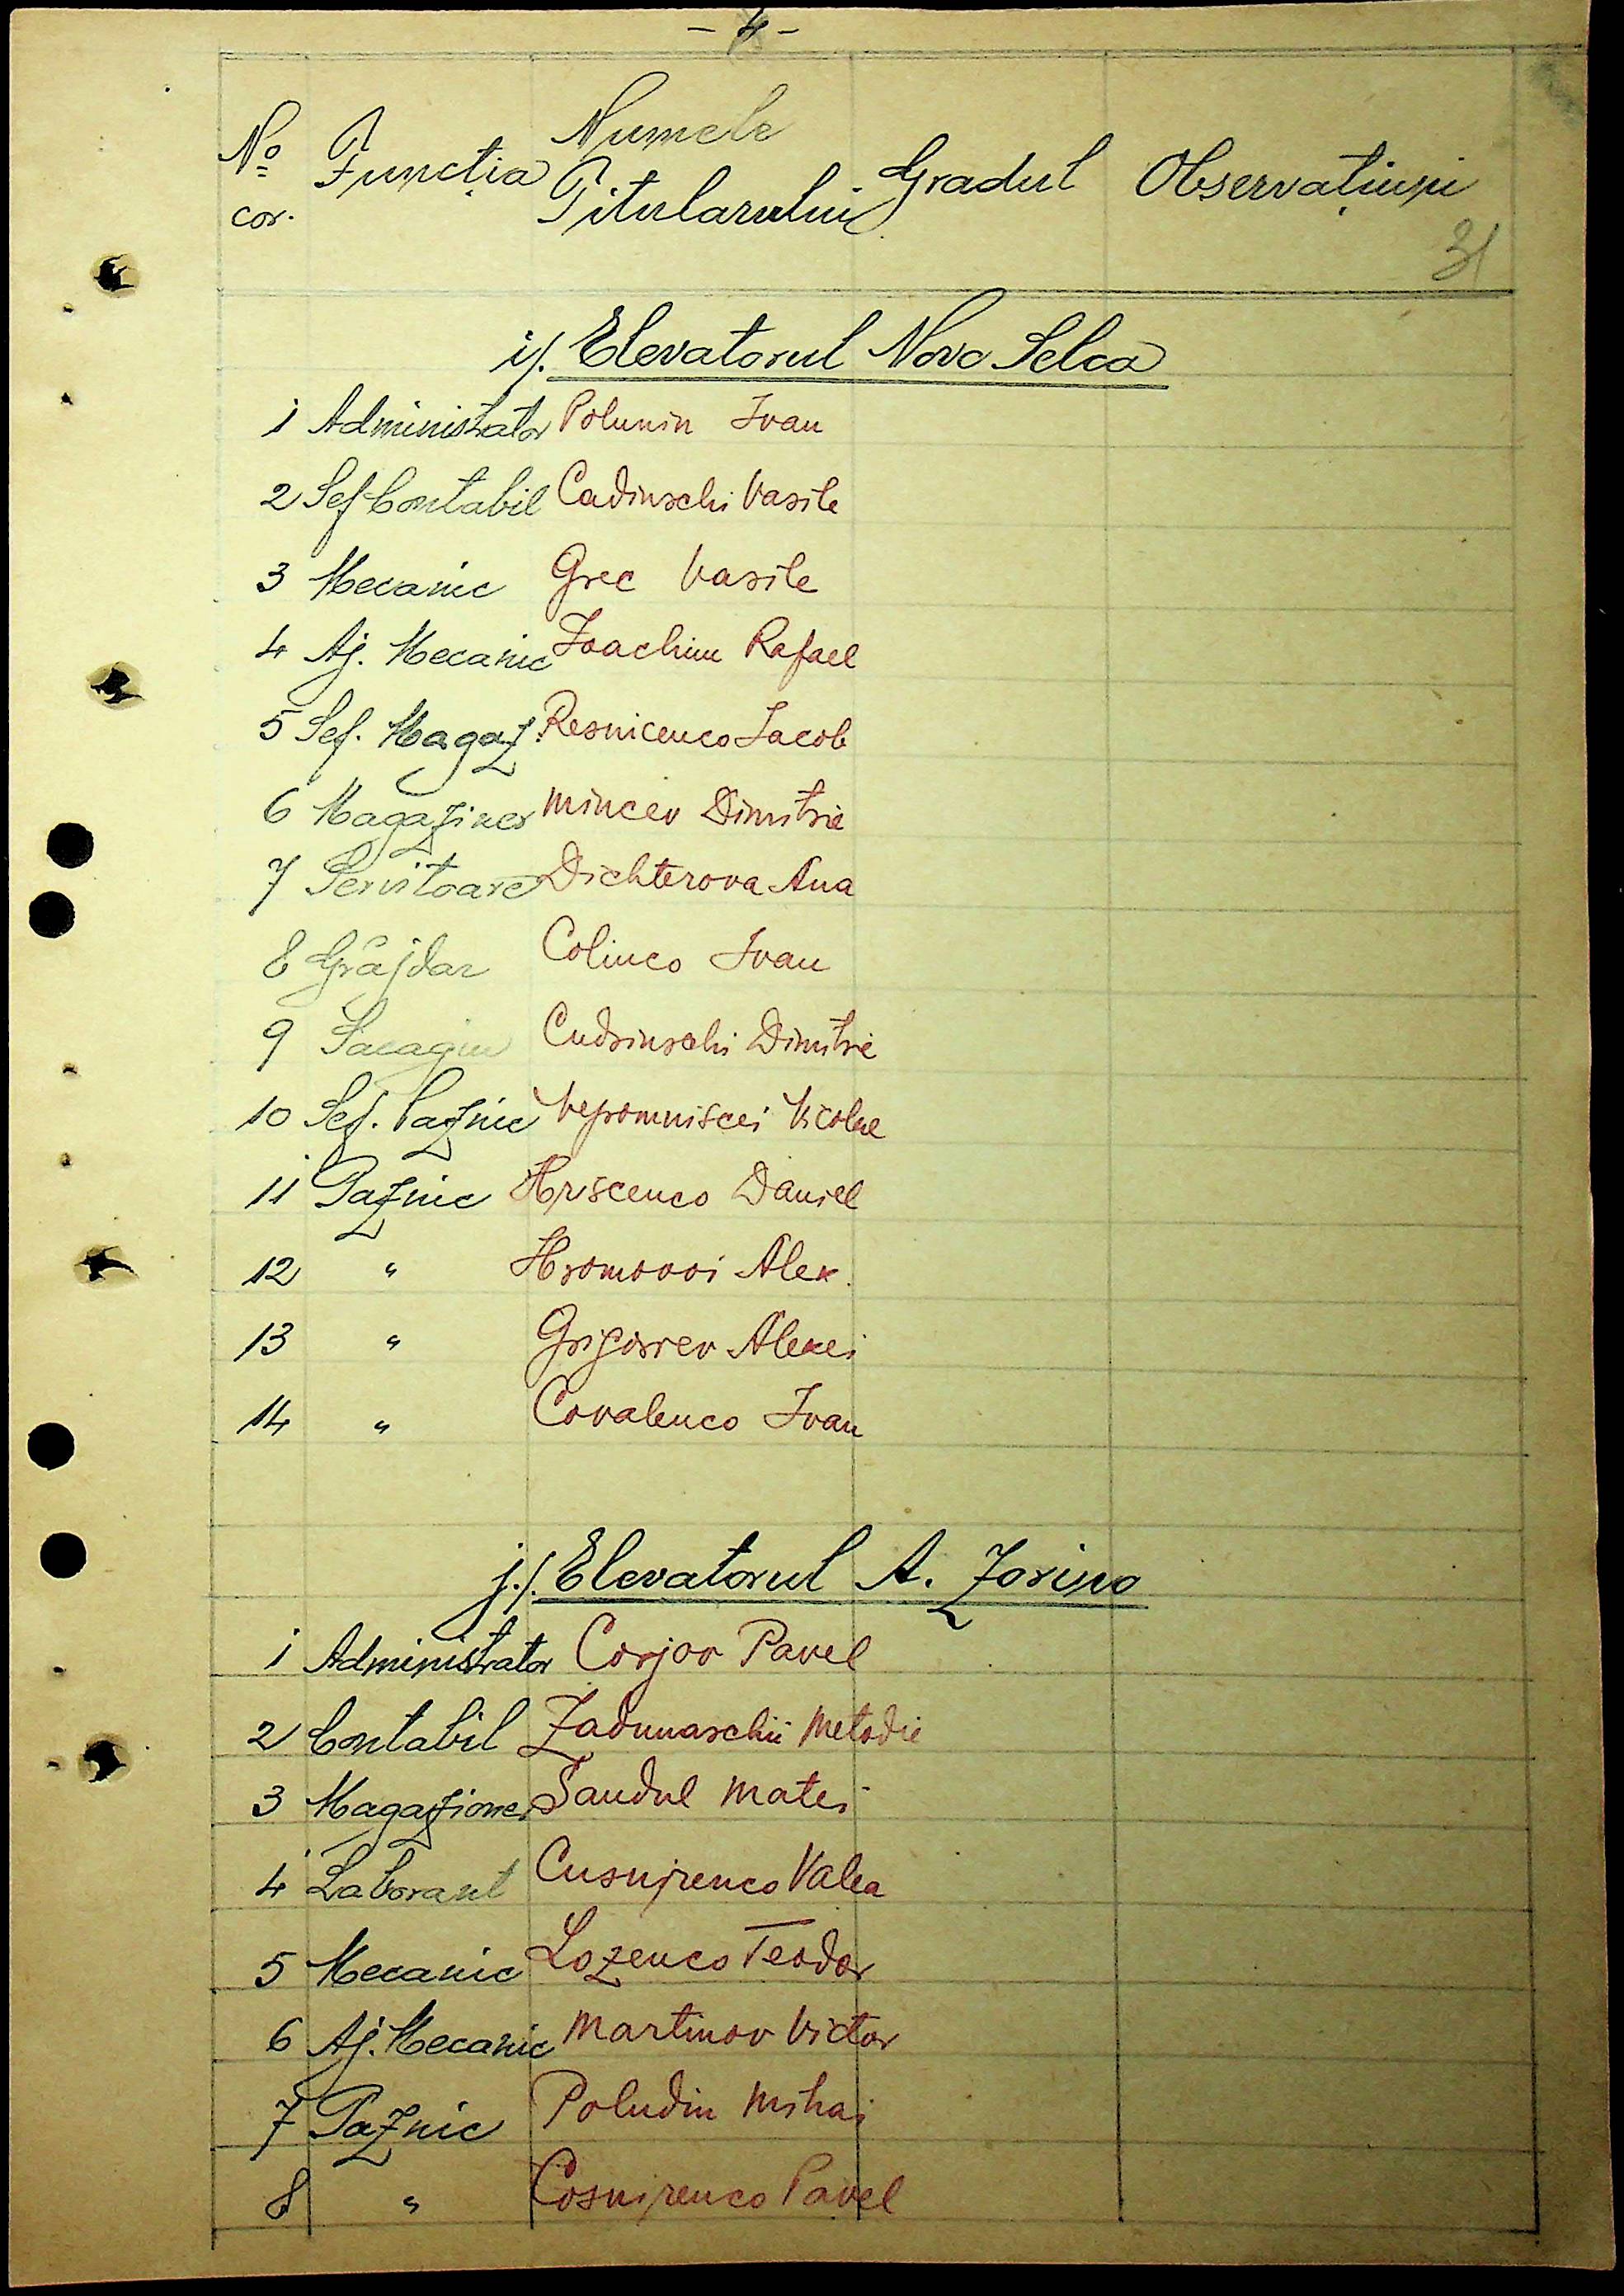 - 4 -
No cor. Funcția Numele Titularului Gradul Observațiuni
31
i/. Elevatorul Novo Selca
1 Administrator Polunin Ivan
2 Sef Contabil Cadinschi Vasile
3 Mecanic Grec Vasile
4 Aj. Mecanic Ioachim Rafael
5 Sef. Magaz. Resnicenco Iacob
6 Magaziner Mincev Dimitrie
7 Servitoare Dichterova Ana
8 Grăjdar Colinco Ivan
9 Sacagiu Cudrinschi Dimitrie
10 Sef. Paznic Nepomniscei Nicolae
11 Paznic Hriscenco Daniel
12 " Hromovoi Alex.
13 " Grigorev Alexei
14 " Covalenco Ivan
j./. Elevatorul A. Zorino
1 Administrator Corjov Pavel
2 Contabil Zadunaschii Metodie
3 Magazioner Sandul Matei
4 Laborant Cusnirenco Valea
5 Mecanic Lozenco Teodor
6 Aj. Mecanic Martinov Victor
7 Paznic Poludin Mihai
8 " Cosnirenco Pavel